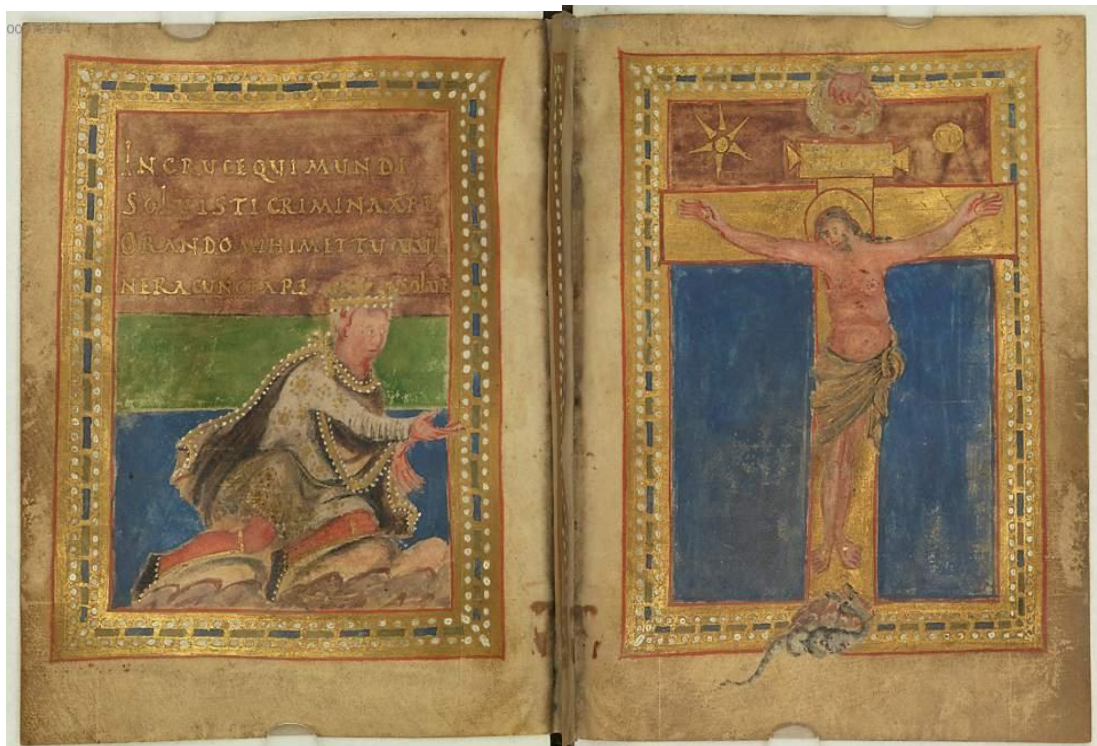 IN CRUCE QUI MUNDI
SOLVISTI CRIMINA XPE
ORANDO MIHIMET TU VUL
NERA CUNCTA solue
39